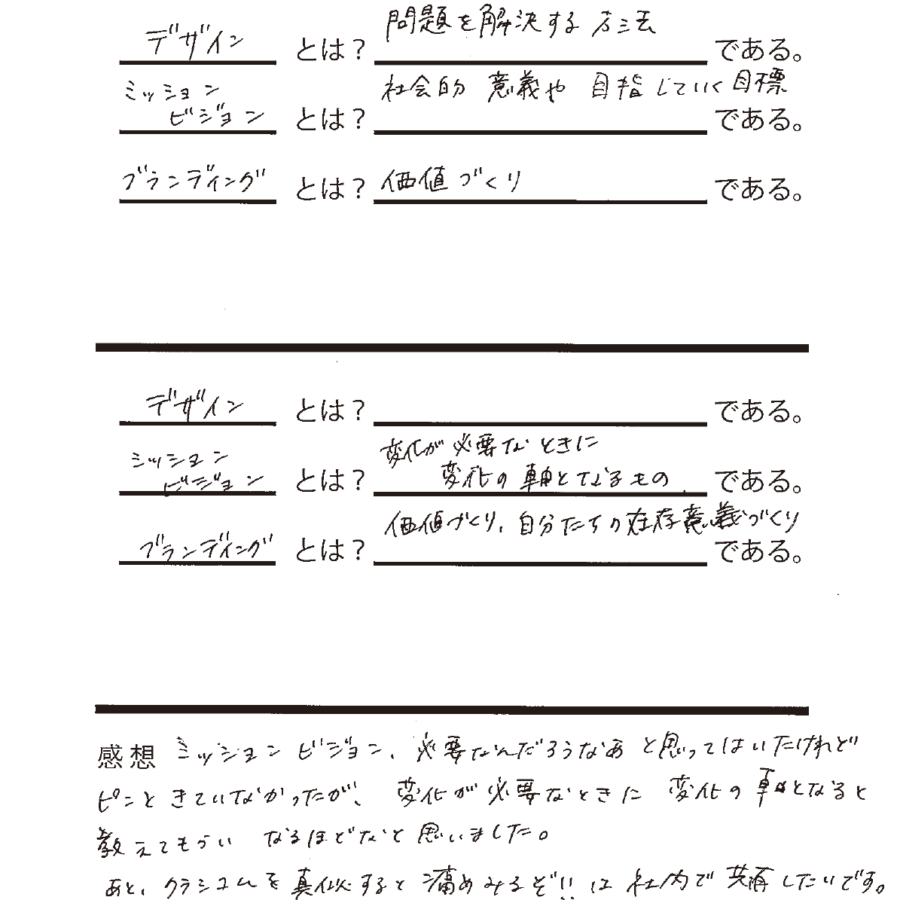 デザイン とは? 問題を解決する方法 である。
ミッション 社会的 意義や 目指していく目標
ビジョン とは? である。
ブランディング とは? 価値づくり である。
デザイン とは? である。
ミッション 変化が必要なときに
ビジョン とは? 変化の軸となるもの である。
価値づくり、自分たちの在存意義づくり
ブランディング とは? である。
感想 ミッション ビジョン、必要なんだろうなあ と思ってはいたけれど
ピンときていなかったが、変化が必要なときに 変化の軸となると
教えてもらい なるほどなと思いました。
あと、クラシコムを真似すると痛めみるぞ!! は 社内で共有したいです。